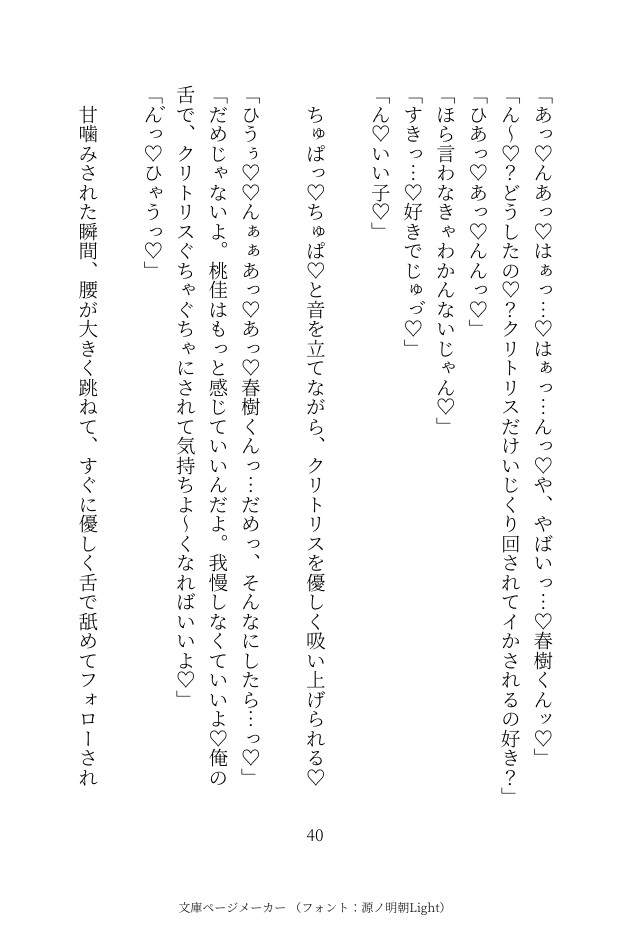 「あっ♡んあっ♡はぁっ…♡はぁっ…んっ♡や、やばいっ…♡春樹くんッ♡」
「ん～♡？どうしたの♡？クリトリスだけいじくり回されてイかされるの好き？」
「ひあっ♡あっ♡んんっ♡」
「ほら言わなきゃわかんないじゃん♡」
「すきっ…♡好きでじゅっ゛♡」
「ん♡いい子♡」
ちゅぱっ♡ちゅぱ♡と音を立てながら、クリトリスを優しく吸い上げられる♡
「ひうぅ♡♡んぁぁあっ♡あっ♡春樹くんっ…だめっ、そんなにしたら…っ♡」
「だめじゃないよ。桃佳はもっと感じていいんだよ。我慢しなくていいよ♡俺の
舌で、クリトリスぐちゃぐちゃにされて気持ちよ～くなればいいよ♡」
「ん゛っ♡ひゃうっ♡」
甘噛みされた瞬間、腰が大きく跳ねて、すぐに優しく舌で舐めてフォローされ
40
文庫ページメーカー（フォント：源ノ明朝Light）